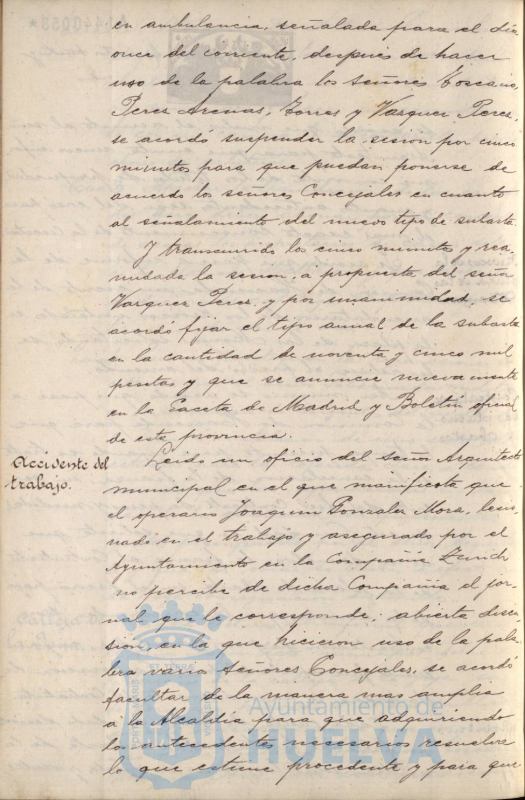 en ambulancia, señalada para el día
once del corriente, después de hacer
uso de la palabra los señores Toscano,
Peres Arenas, Torres y Vazquez Peres,
se acordó suspender la sesion por cinco
minutos para que puedan ponerse de
acuerdo los señores Concejales en cuanto
al señalamiento del nuevo tipo de subasta.
Y transcurrido los cinco minutos y rea-
nudada la sesion, a propuesta del señor
Vazquez Peres, y por unanimidad, se
acordó fijar el tipo anual de la subasta
en la cantidad de noventa y cinco mil
pesetas y que se anuncie nuevamente
en la Gaceta de Madrid y Boletin oficial
de esta provincia.
Accidente del
trabajo.
Leido un oficio del señor Arquitecto
municipal en el que manifiesta que
el operario Joaquin Gonzalez Mora, lesio
nado en el trabajo y asegurado por el
Ayuntamiento en la Compañia Zurich
no percibe de dicha Compañia el jor-
nal que le corresponde; abierta discu-
sion, en la que hicieron uso de la pala-
bra varios Señores Concejales, se acordó
facultar de la manera mas amplia
a la Alcaldia para que adquiriendo
los antecedentes necesarios resuelva
lo que estime procedente y para que
Ayuntamiento de
HUELVA